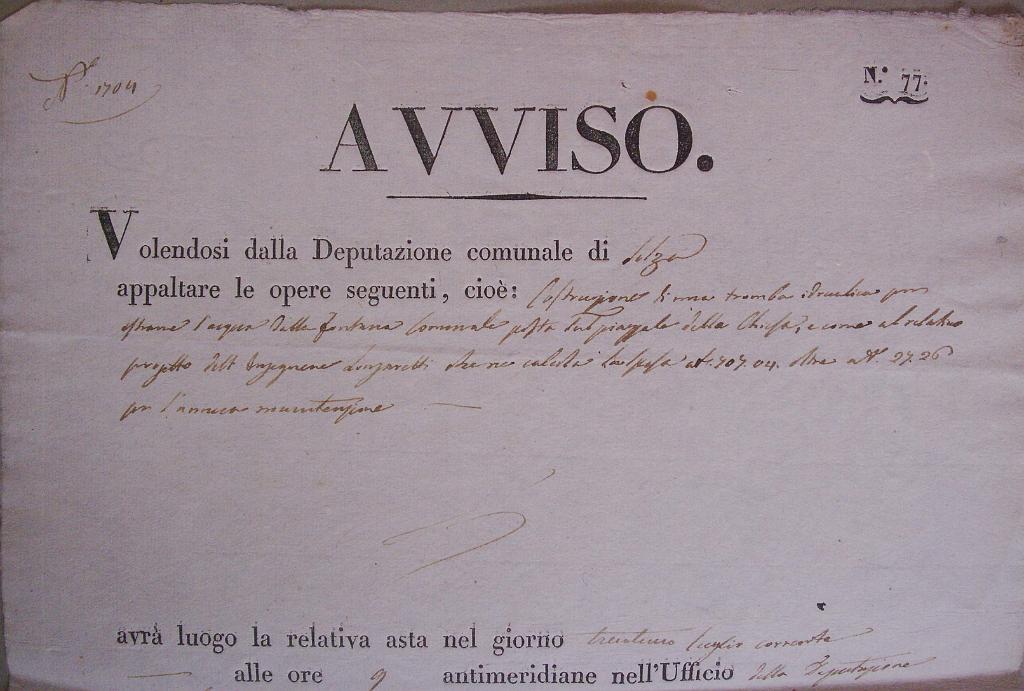 N.° 1704
N.° 77.
AVVISO.
Volendosi dalla Deputazione comunale di
appaltare le opere seguenti, cioè: Costruzione di una tromba idraulica per
estrarre l'acqua dalla fontana Comunale posta sul piazzale della Chiesa, e come al relativo
progetto dell' Ingegnere che ne calcola la spesa a 707.04. oltre a 27.26
per l'annua manutenzione
avrà luogo la relativa asta nel giorno trentuno luglio corrente
alle ore 9 antimeridiane nell'Ufficio della Deputazione